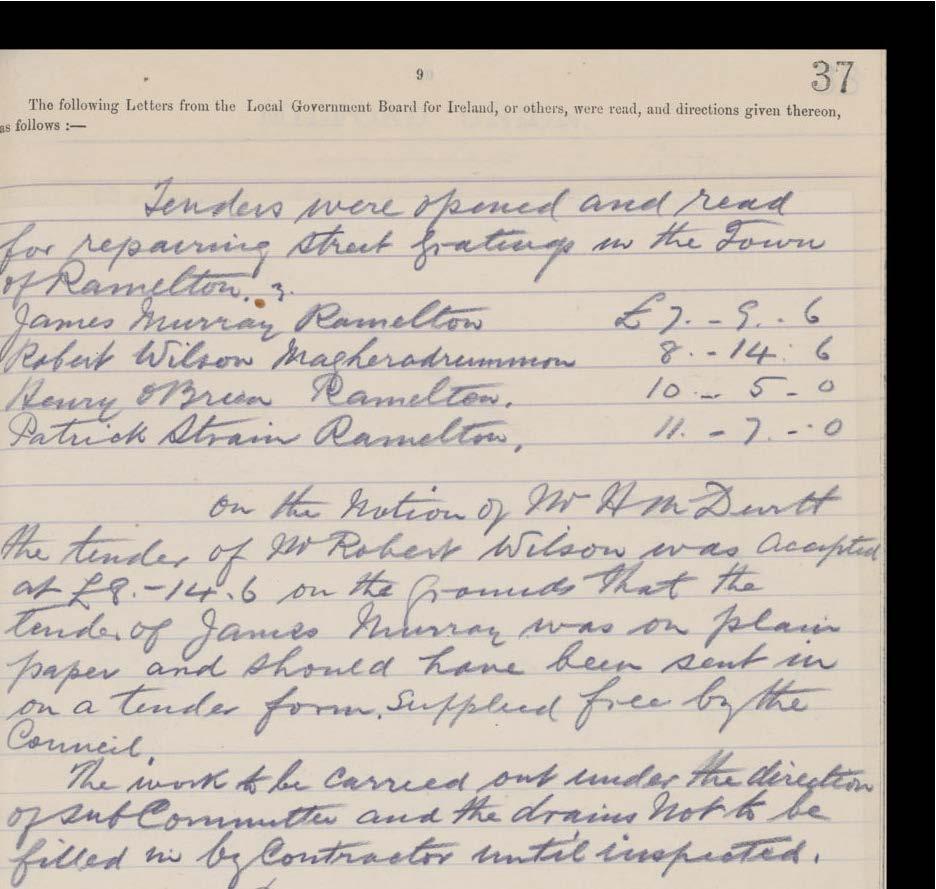 9
37
The following Letters from the Local Government Board for Ireland, or others, were read, and directions given thereon,
as follows :—
Tenders were opened and read
for repairing street gratings in the Town
of Ramelton.
James Murray Ramelton £7. - 9. - 6
Robert Wilson Magheradrummon 8. - 14. 6
Henry O'Brien Ramelton. 10 - 5 - 0
Patrick Strain Ramelton, 11. - 7. - 0
On the Motion of Mr H
the tender of Mr Robert Wilson was accepted
at £8. - 14. 6 on the grounds that the
tender of James Murray was on plain
paper and should have been sent in
on a tender form. Supplied free by the
Council.
The work to be carried out under the direction
of sub Committee and the drains Not to be
filled in by Contractor until inspected.